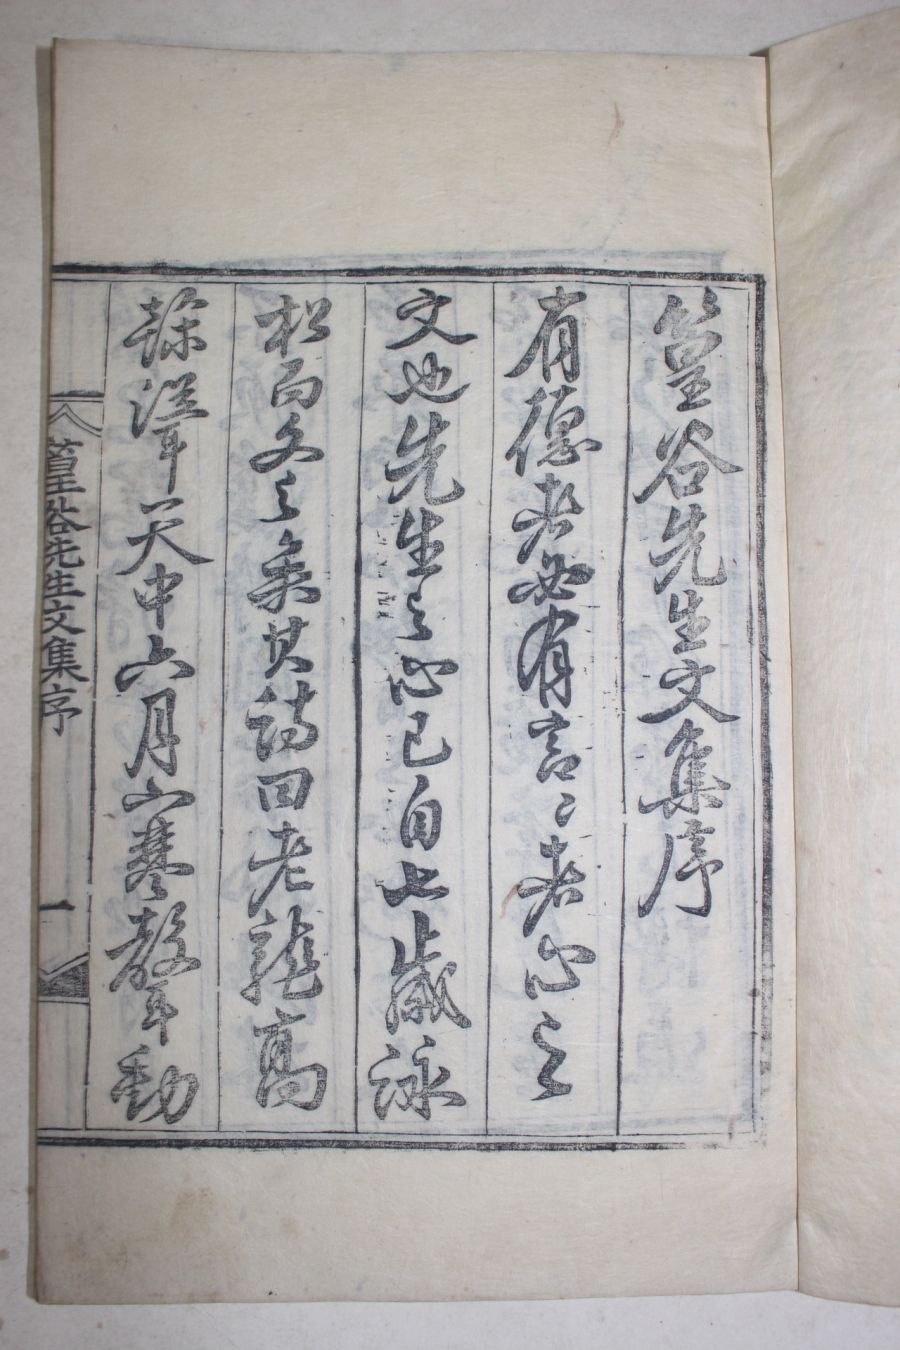 篁谷先生文集序
有德者必有言〻者心之
文也先生之心已自七歲詠
松而文之矣其詩曰老龍高
聳天中六月寒聲動
篁谷先生文集序 一